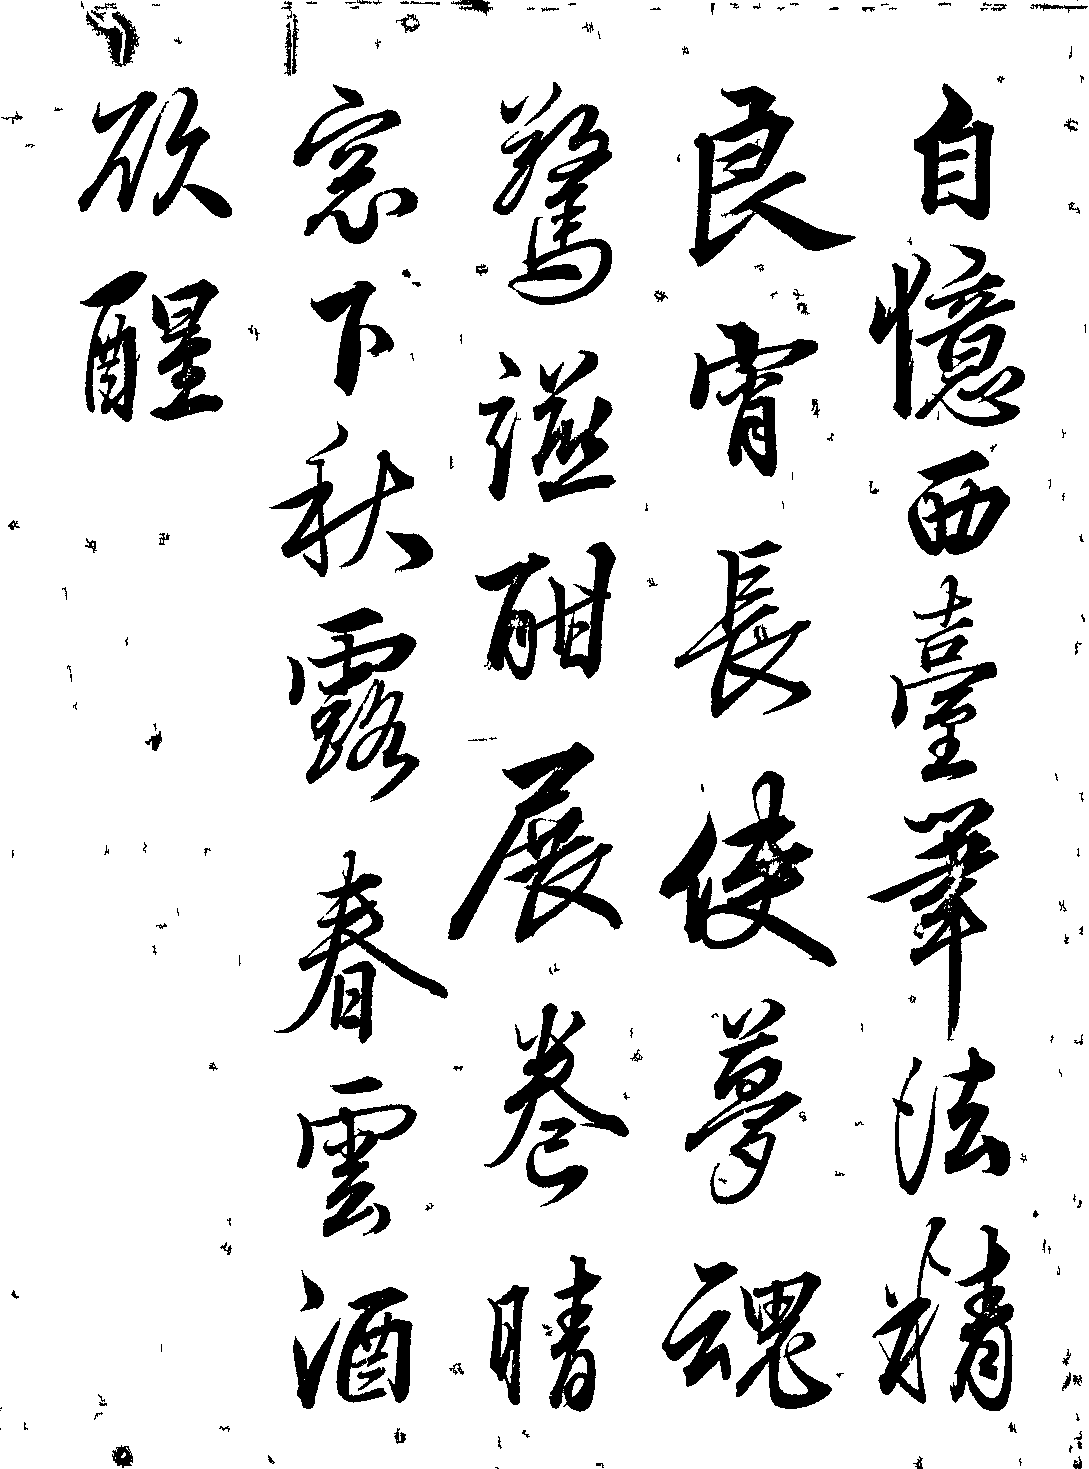 自憶西臺筆法精
良宵長使夢魂
驚讌酣展卷晴
窓下秋露春雲酒
欲醒